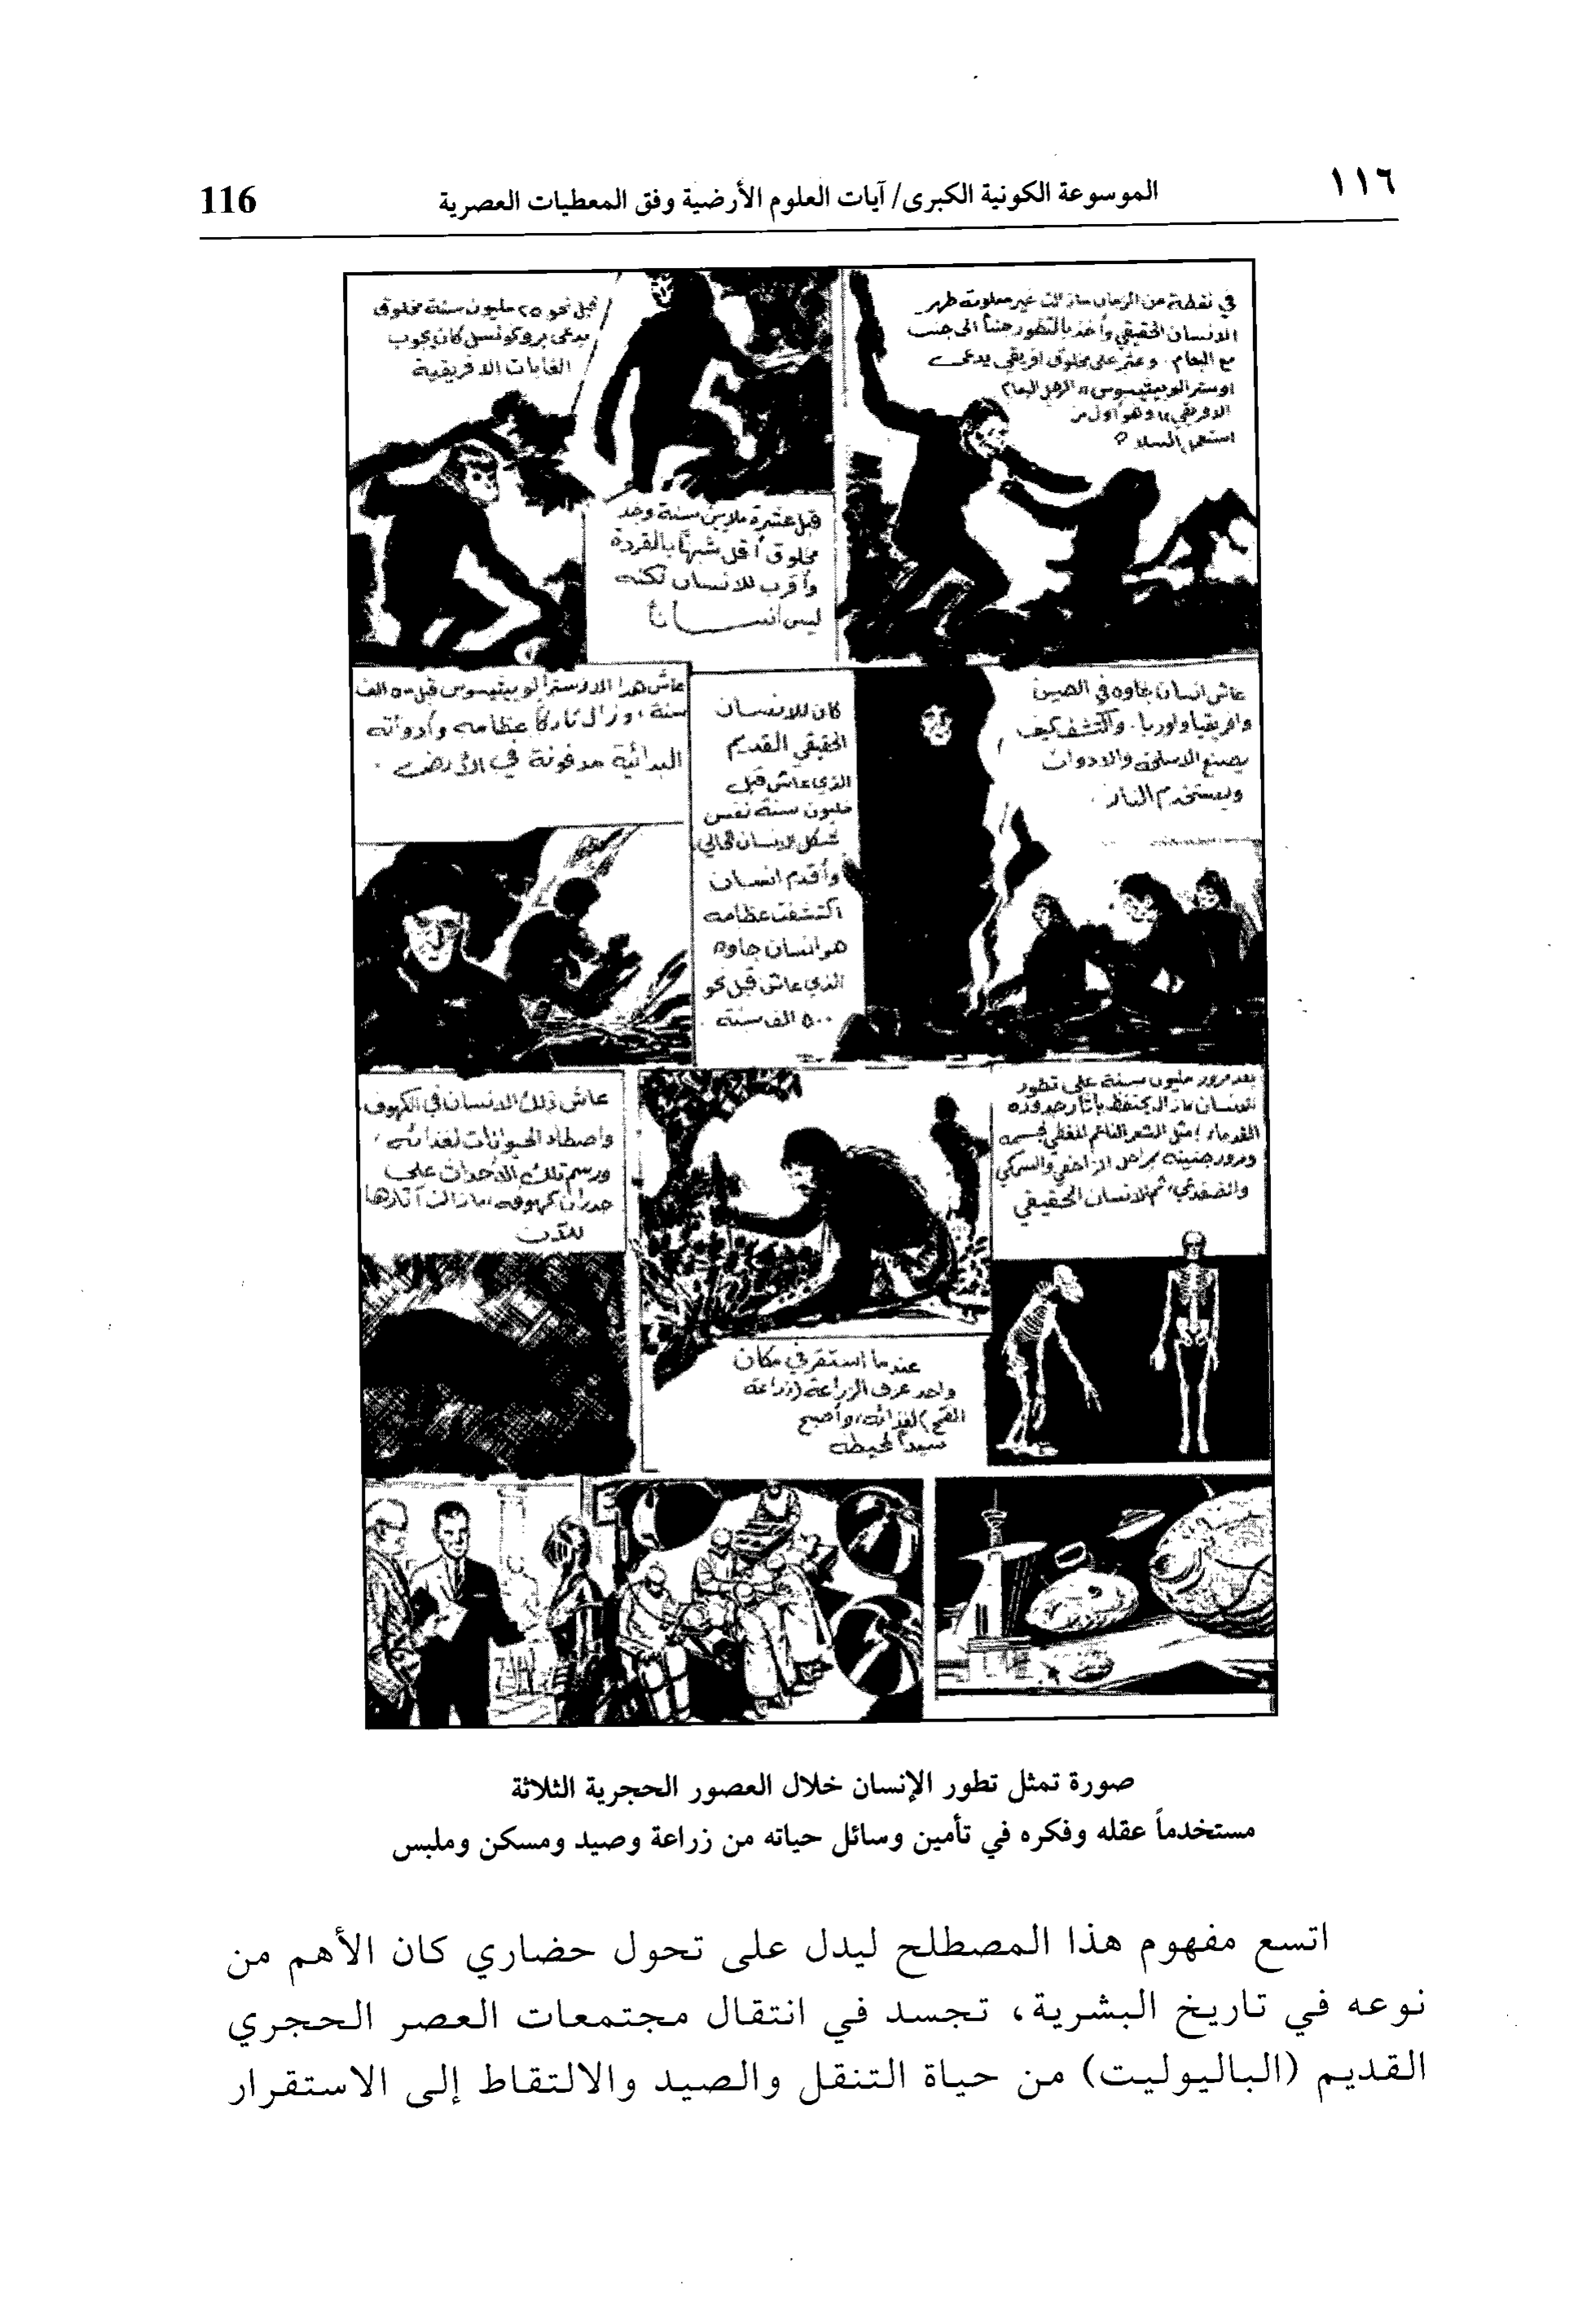 ١١٦
الموسوعة الكونية الكبرى/ آيات العلوم الأرضية وفق المعطيات العصرية
116
في نقطة من الزمان مازالت غير معلومة ظهر
الانسان الحقيقي وأخذ بالتطور جنباً الى جنب
مع البعام . وعثر على مخلوق افريقي يدعى
اوسترالوبيثيسوس «الرجل البعام
الافريقي» وهو اول من
استعمل السلاح
قبل نحو ٢٥ مليون سنة مخلوق
يدعى بروكونسل كان يجوب
الغابات الافريقية
قبل عشرة ملايين سنة وجد
مخلوق أقل شبهاً بالقردة
وأقرب للانسان لكنه
ليس انساناً
عاش انسان جاوه في الصين
وافريقيا واوربا . واكتشف كيف
يصنع الاسلحة والادوات
ويستخدم النار .
كان للانسان
الحقيقي القديم
الذي عاش قبل
مليون سنة نفس
شكل الانسان الحالي
وأقدم انسان
اكتشفت عظامه
هو انسان جاوه
الذي عاش قبل نحو
٥٠٠ الف سنة .
عاش هذا الاوسترالوبيثيسوس قبل ٥٠٠ الف
سنة ، وزال تاركاً عظامه وأدواته
البدائية مدفونة في الأرض .
بعد مرور مليون سنة على تطور
الانسان مازال يحتفظ بآثار جدوده
القدماء ؛ مثل الشعر الناعم المغطي لجسمه
ومرور جنينه بمراحل الزاحفي والسمكي
والضفدعي، ثم الانسان الحقيقي
عندما استقر في مكان
واحد عرف الزراعة (زراعة
القمح) لغذائه، وأصبح
سيداً لمحيطه
عاش ذلك الانسان في الكهوف
واصطاد الحيوانات لغذائه ،
ورسم تلك الأحداث على
جدران كهوفه، مازالت آثارها
للآن
صورة تمثل تطور الإنسان خلال العصور الحجرية الثلاثة
مستخدماً عقله وفكره في تأمين وسائل حياته من زراعة وصيد ومسكن وملبس
اتسع مفهوم هذا المصطلح ليدل على تحول حضاري كان الأهم من
نوعه في تاريخ البشرية، تجسد في انتقال مجتمعات العصر الحجري
القديم (الباليوليت) من حياة التنقل والصيد والالتقاط إلى الاستقرار